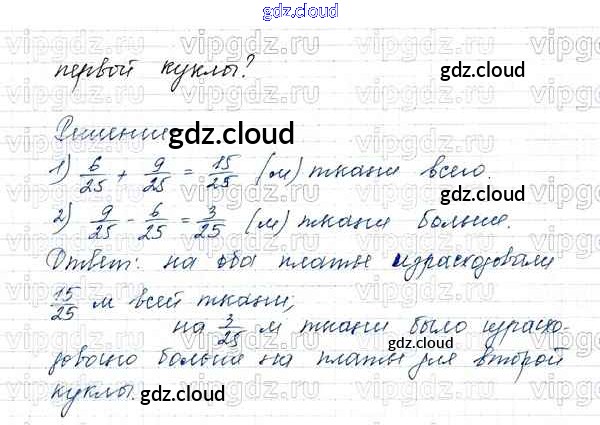 gdz.cloud
первой куклы?
gdz.cloud
Решение
gdz.cloud
1) 6/25 + 9/25 = 15/25 (м) ткани всего.
gdz.cloud
2) 9/25 - 6/25 = 3/25 (м) ткани больше.
Ответ: на оба платье израсходовали
15/25 м всей ткани;
gdz.cloud
на 3/25 м ткани было израсхо-
довано больше на платье для второй
куклы.
gdz.cloud
gdz.cloud